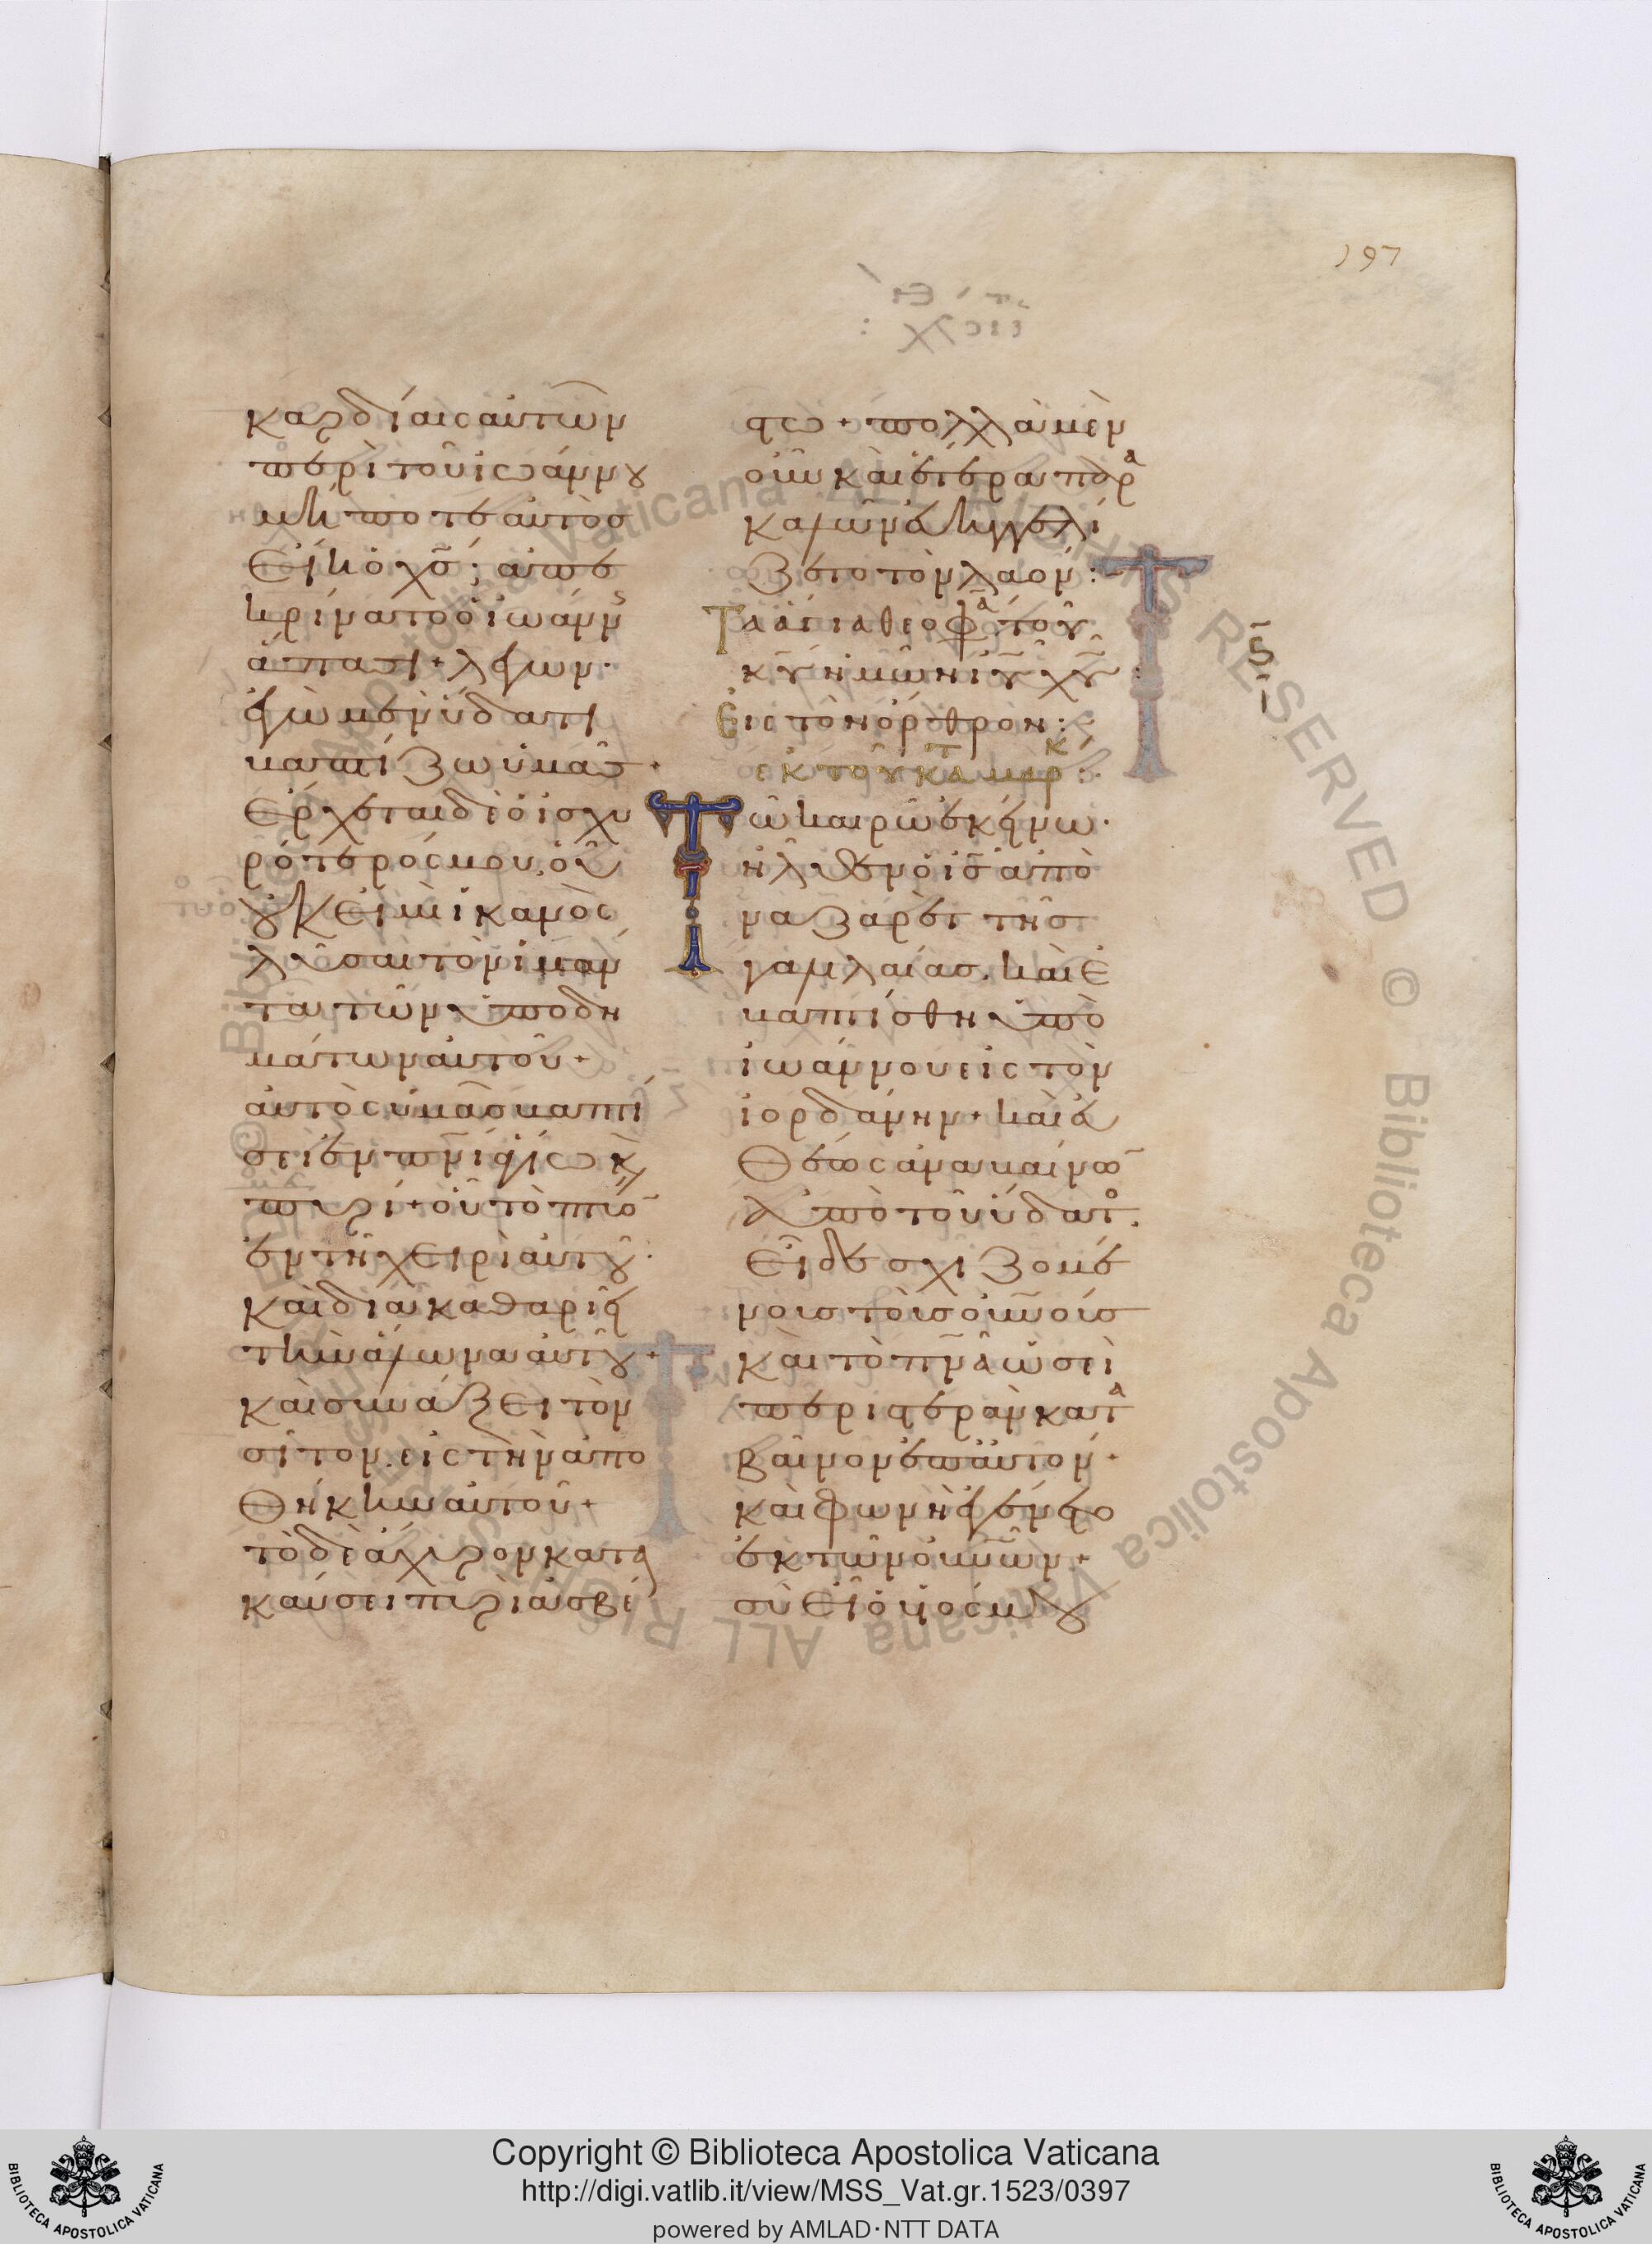 197
καρδίαις αὐτῶν
περὶ τοῦ ἰωάννου
μήποτε αὐτὸς
εἴη ὁ χς̄; ἀπε
κρίνατο ὁ ἰωάννης
ἅπασι· λέγων·
ἐγὼ μὲν ὕδατι
βαπτίζω ὑμᾶς·
ἔρχεται δὲ ὁ ἰσχυ
ρότερός μου, οὗ
οὐκ εἰμὶ ἱκανὸς
λῦσαι τὸν ἱμάν
τα τῶν ὑποδη
μάτων αὐτοῦ·
αὐτὸς ὑμᾶς βαπτί
σει ἐν πνῑ ἁγίω κ(αὶ)
πυρί· οὗ τὸ πτύο̄
ἐν τῇ χειρὶ αὐτοῦ·
καὶ διακαθαριεῖ
τὴν ἅλωνα αὐτοῦ·
καὶ συνάξει τὸν
σῖτον εἰς τὴν ἀπο
θήκην αὐτοῦ·
τὸ δὲ ἄχυρον κατα
καύσει πυρὶ ἀσβέ
στω· πολλὰ μὲν
οὖν καὶ ἕτερα παρα
καλῶν εὐηγγελί
ζετο τὸν λαόν:
Τὰ ἅγια θεοφα̅ τοῦ
κῡ ἡμῶν ῑῡ χῡ:
Εἰς τὸν ὄρθρον:
ἐκ τοῦ κατ μάρκ:
Τῶ καιρῶ ἐκείνω·
ἦλθεν ὁ ῑς̄ ἀπὸ
ναζαρὲτ τῆς
γαλιλαίας. καὶ ἐ
βαπτίσθη ὑπὸ
ἰωάννου εἰς τὸν
ἰορδάνην· καὶ εὐ
θέως ἀναβαίνω̄
ἀπὸ τοῦ ὕδατος.
εἶδε σχιζομέ
νους τοὺς οὐν̄οὺς
καὶ τὸ πν̄ᾱ ὡσεὶ
περιστερὰν κατα
βαῖνον ἐπ᾽ αὐτόν·
καὶ φωνὴ ἐγένετο
ἐκ τῶν οὐν̄ῶν·
σὺ εἶ ὁ υἱός μου
ς̄
Copyright © Biblioteca Apostolica Vaticana
http://digi.vatlib.it/view/MSS_Vat.gr.1523/0397
powered by AMLAD·NTT DATA
BIBLIOTECA APOSTOLICA VATICANA
BIBLIOTECA APOSTOLICA VATICANA
© Biblioteca Apostolica Vaticana ALL RIGHTS RESERVED © Biblioteca Apostolica Vaticana ALL RIGHTS RESERVED